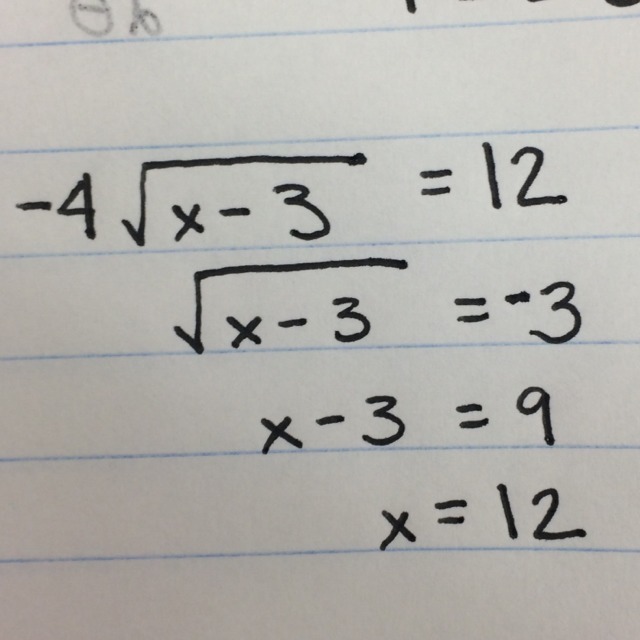 -4√(x-3) = 12
√(x-3) = -3
x-3 = 9
x = 12